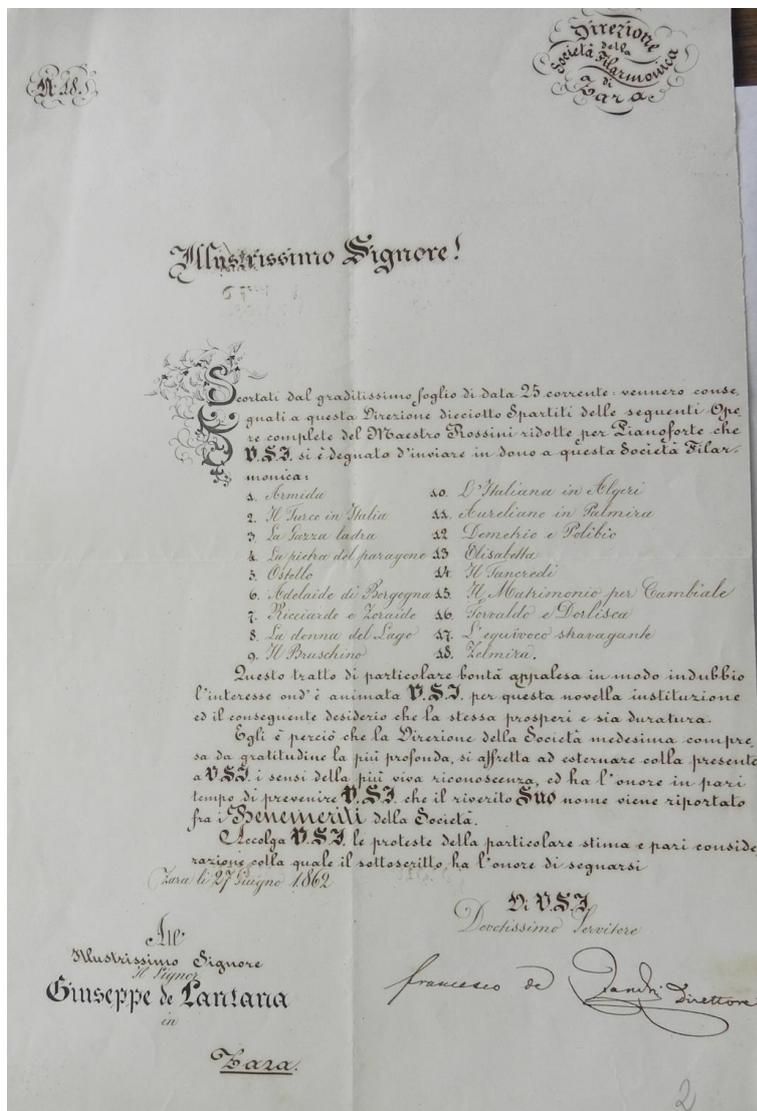 Direzione
della
Società Filarmonica
di
a Zara
Illustrissimo Signore!
Scortati dal graditissimo foglio di data 25 corrente: vennero conse,
gnati a questa Direzione dieciotto Spartiti delle seguenti Ope,
re complete del Maestro Rossini ridotte per Pianoforte che
V.S.I. si è degnato d'inviare in dono a questa Società Filar-
monica:
1. Armida
2. Il Turco in Italia
3. La Gazza ladra
4. La pietra del paragone
5. Otello
6. Adelaide di Borgogna
7. Ricciardo e Zoraide
8. La donna del Lago
9. Il Bruschino
10. L'Italiana in Algeri
11. Aureliano in Palmira
12 Demetrio e Polibio
13 Elisabetta
14. Il Tancredi
15. Il Matrimonio per Cambiale
16. Torvaldo e Dorlisca
17. L'equivoco stravagante
18. Zelmira.
Questo tratto di particolare bontà appalesa in modo indubbio
l'interesse ond'è animata V.S.I. per questa novella instituzione
ed il conseguente desiderio che la stessa prosperi e sia duratura.
Egli è perciò che la Direzione della Società medesima compre,
sa da gratitudine la più profonda, si affretta ad esternare colla presente
a V.S.I. i sensi della più viva riconoscenza, ed ha l'onore in pari
tempo di prevenire V.S.I. che il riverito Suo nome viene riportato
fra i Benemeriti della Società.
Accolga V.S.I. le proteste della particolare stima e pari conside
razione colla quale il sottoscritto ha l'onore di segnarsi
Zara li 27 Giugno 1862
Di V.S.I.
Devotissimo Servitore
francesco de Direttore
All'
Illustrissimo Signore
Il Signor
Giuseppe de Lantana
in
Zara.
2